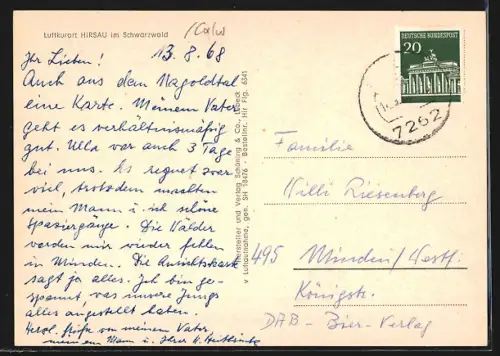 Luftkurort HIRSAU im Schwarzwald
/Calw
13.8.68
Ihr Lieben!
Auch aus dem Nagoldtal
eine Karte. Meinem Vater
geht es verhältnismäßig
gut. Ulla war auch 3 Tage
bei uns. Es regnet zwar
viel, trotzdem machten
mein Mann u. ich schöne
Spaziergänge. Die Wälder
werden mir wieder fehlen
in Minden. Die Ansichtskarte
sagt ja alles. Ich bin ge-
spannt, was unsere Jungs
alles angestellt haben.
Herzl. Grüße von meinem Vater
meinem Mann u. Ihrer H.
Hersteller und Verlag Schöning & Co., Lübeck
v Luftaufnahme, gen. SH 10476 - Bestellnr. Hir Fig. 6541
DEUTSCHE BUNDESPOST
20
7262
Familie
Willi Riesenberg
495 Minden/Westf.
Königstr.
DAB - Bier-Verlag